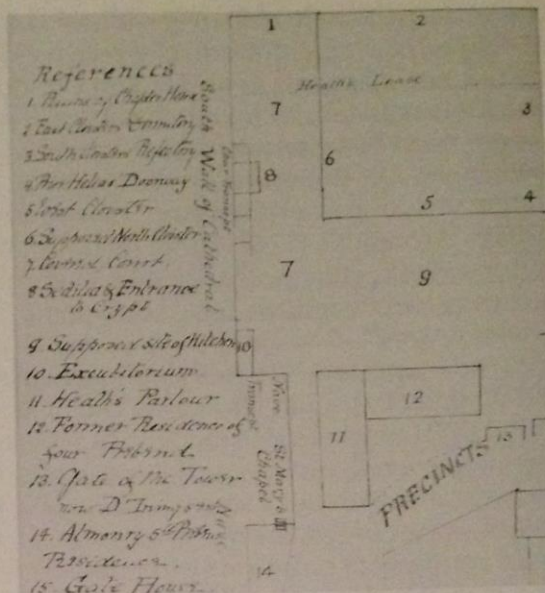 References
1. Ruins of Chapter House
2. East Cloisters & Dormitory
3. South Cloisters Refectory
4. Prior Helias Doorway
5. West Cloister
6. Supposed North Cloister
7. Court
8. Sedilia & Entrance
to Crypt
9. Supposed site of Kitchen
10. Excubitorium
11. Heath's Parlour
12. Former Residence of
four Prebend
13. Gate of the Tower
now Dr
14. Almonry 5th
Residence.
15. Gate House
South Wall of Cathedral
Transept
Nave
St Mary's
Chapel
Heath's Lease
PRECINCTS
1
2
3
4
5
6
7
8
7
9
10
11
12
13
14